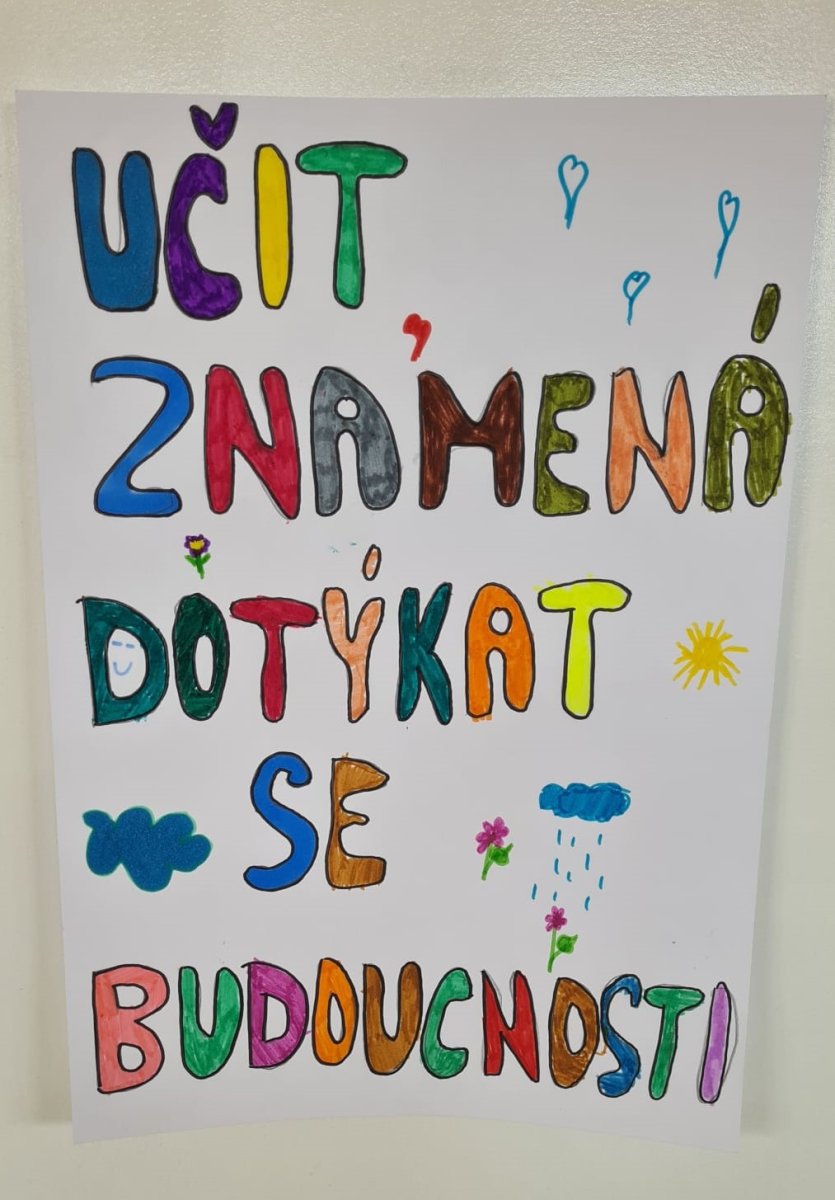 UČIT
ZNAMENÁ
DOTÝKAT
SE
BUDOUCNOSTI